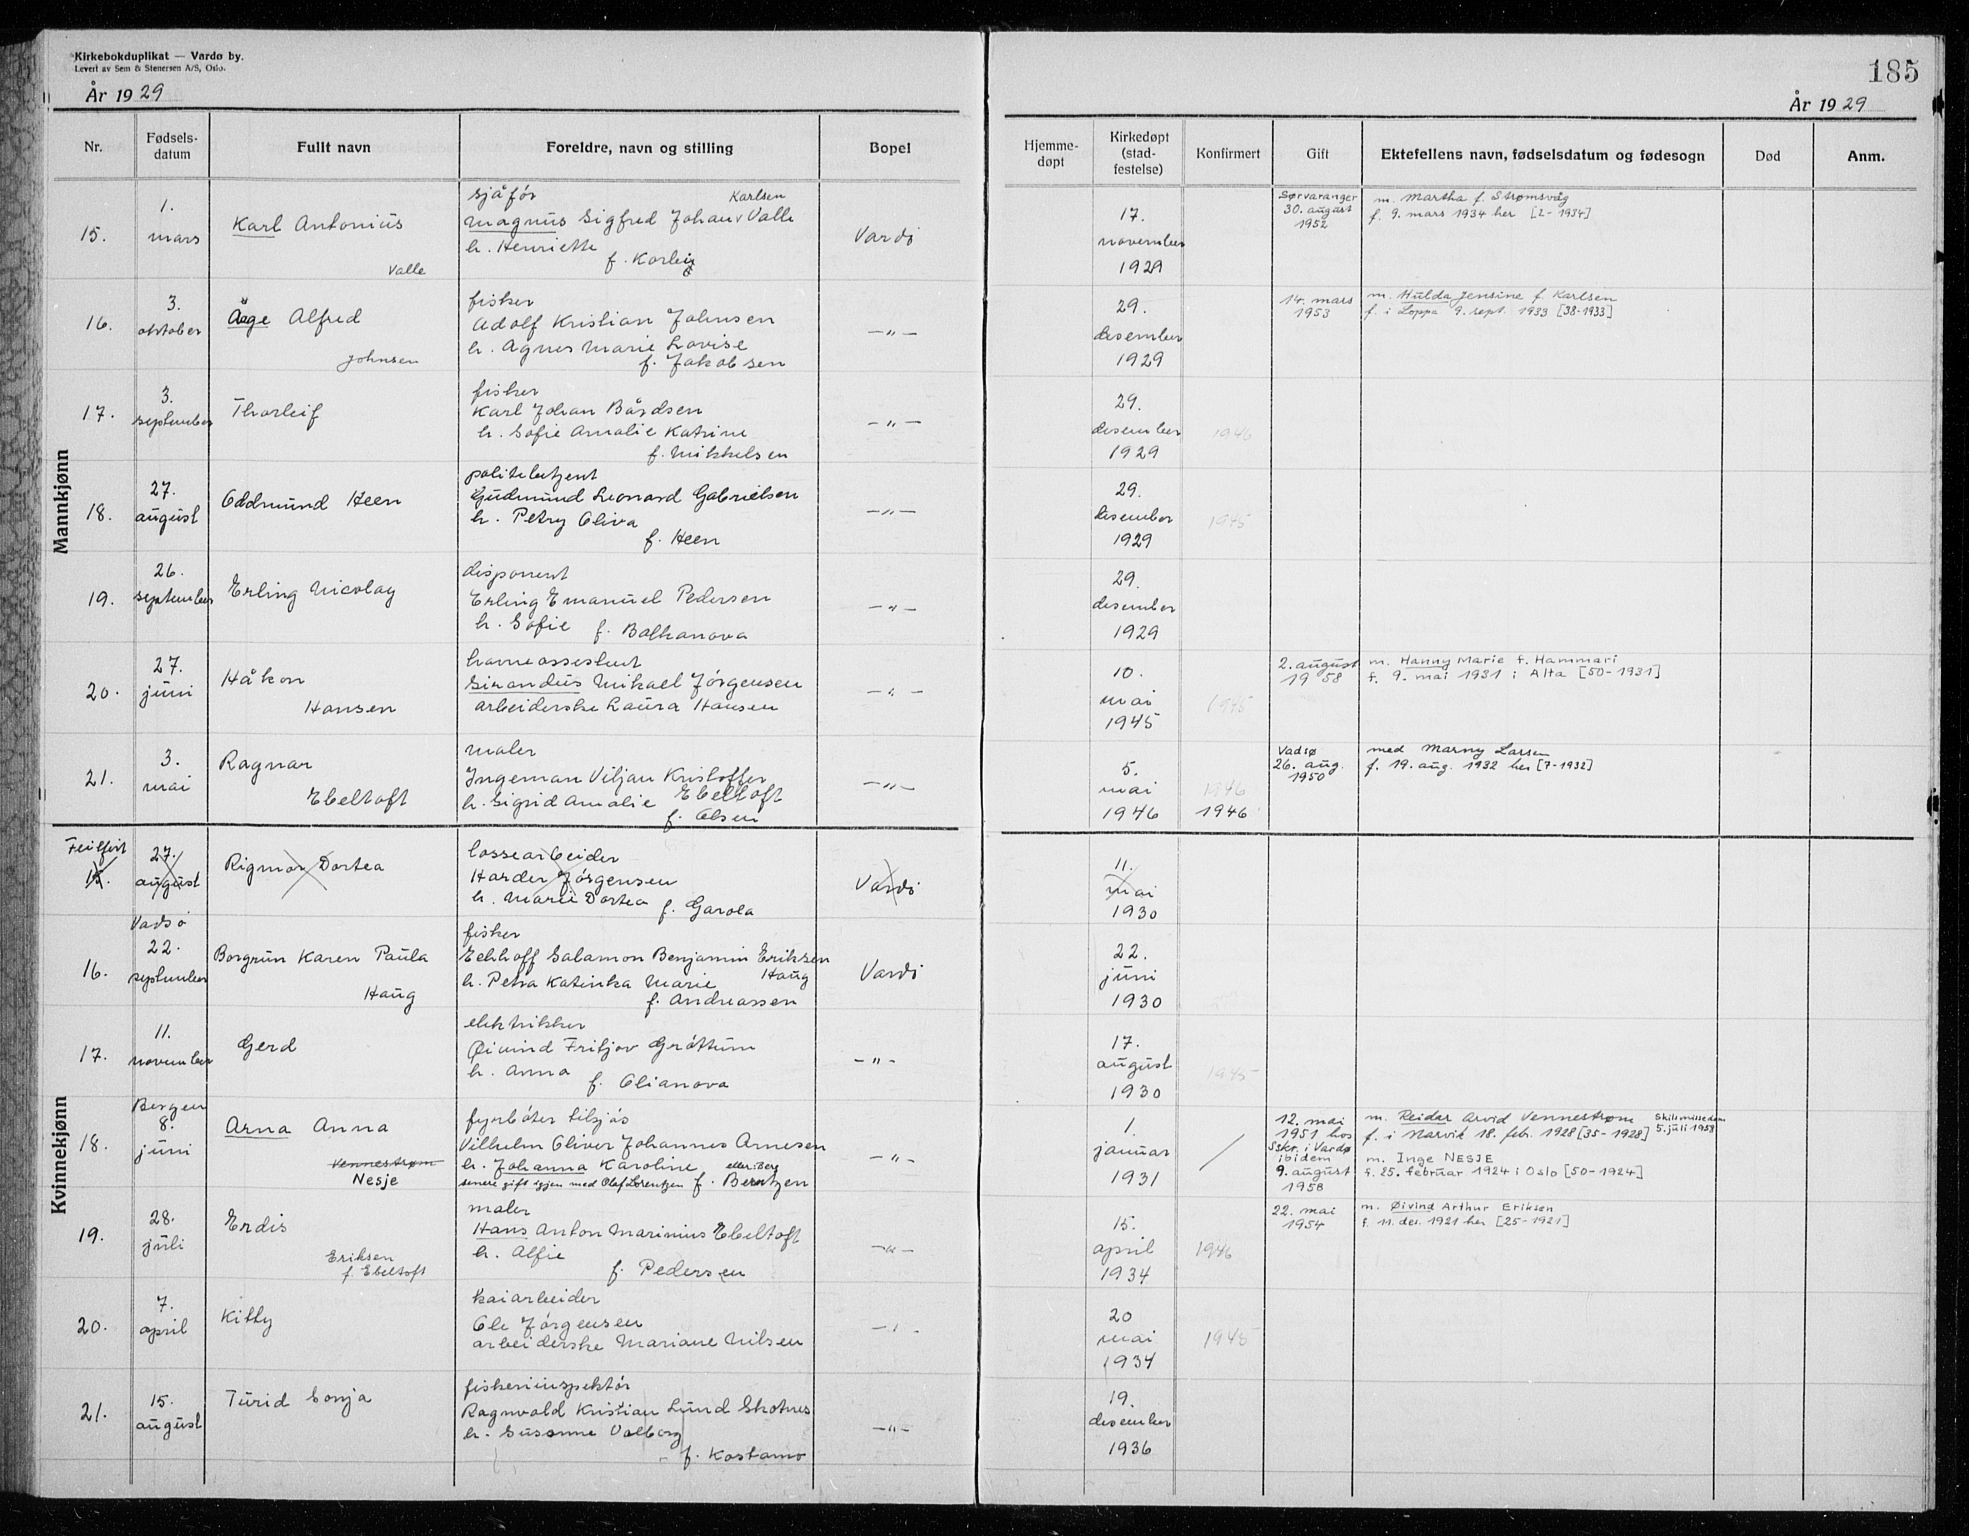 Kirkebokduplikat — Vardø by.
Levert av Sem & Stenersen A/S, Oslo.
185
År 1929
År 1929
Nr.
Fødsels-
datum
Fullt navn
Foreldre, navn og stilling
Bopel
Hjemme-
døpt
Kirkedøpt
(stad-
festelse)
Konfirmert
Gift
Ektefellens navn, fødselsdatum og fødesogn
Død
Anm.
Mannkjønn
15.
1.
mars
Karl Antonius
Valle
sjåfør
Karlsen
Magnus Sigfred Johan Valle
h. Henriette
f. Karlei
Vardø
17.
november
1929
Sørvaranger
30. august
1952
m. Martha f. Strømsvåg
f. 9. mars 1934 her [2-1934]
16.
3.
oktober
Aage Alfred
Johnsen
fisker
Adolf Kristian Johnsen
h. Agnes Marie Lovise
f. Jakobsen
—„—
29.
desember
1929
14. mars
1953
m. Hulda Jensine f. Karlsen
f. i Loppa 9. sept. 1933 [38-1933]
17.
3.
september
Thorleif
fisker
Karl Johan Bårdsen
h. Sofie Amalie Katrine
f. Mikkelsen
—„—
29.
desember
1929
1946
18.
27.
august
Oddmund Heen
politibetjent
Gudmund Leonard Gabrielsen
h. Petry Oliva
f. Heen
—„—
29.
desember
1929
1945
19.
26.
september
Erling Nicolay
disponent
Erling Emanuel Pedersen
h. Sofie f. Balkanova
—„—
29.
desember
1929
20.
27.
juni
Håkon
Hansen
havneassistent
Sirandus Mikael Jörgensen
arbeiderske Laura Hansen
—„—
10.
mai
1945
1945
2. august
1958
m. Hanny Marie f. Hammari
f. 9. mai 1931 i Alta [50-1931]
21.
3.
mai
Ragnar
Ebeltoft
maler
Ingeman Viljan Kristoffer
Ebeltoft
h. Sigrid Amalie
f. Olsen
—„—
5.
mai
1946
1946
1946
Vadsø
26. aug.
1950
med Marny Larsen
f. 19. aug. 1932 her [7-1932]
Kvinnekjønn
Feilført
15.
27.
august
Rigmor Dortea
lossearbeider
Harder Jörgensen
h. Marie Dortea
f. Garola
Vardø
11.
mai
1930
16.
Vadsø
22.
september
Borgrun Karen Paula
Haug
fisker
Eckhoff Salamon Benjamin Eriksen
Haug
h. Petra Katinka Marie
f. Andreassen
Vardø
22.
juni
1930
17.
11.
november
Gerd
elektrikker
Øivind Fritjov Gröttum
h. Anna
f. Olianova
—„—
17.
august
1930
1945
18.
Bergen
8.
juni
Arna Anna
Vennestrøm
Nesje
fyrbøter tilsjøs
Vilhelm Oliver Johannes Arnesen
h. Johanna Karoline
senere gift igjen med Olaf Lorentzen f. Berntzen
—„—
1.
januar
1931
12. mai
1951 hos
Sskr. i Vardø
ibidem
9. august
1958
m. Reidar Arvid Vennestrøm
f. i Narvik 18. feb. 1928 [35-1928]
Skilsmissedom
5. juli 1958
m. Inge NESJE
f. 25. februar 1924 i Oslo [50-1924]
19.
28.
juli
Erdis
Eriksen
f. Ebeltoft
maler
Hans Anton Marinius Ebeltoft
h. Alfie
f. Pedersen
—„—
15.
april
1934
1946
22. mai
1954
m. Øivind Arthur Eriksen
f. 11. des. 1921 her [25-1921]
20.
7.
april
Kitty
kaiarbeider
Ole Jörgensen
arbeiderske Mariane Nilsen
—„—
20
mai
1934
1945
21.
15.
august
Turid Sonja
fiskeriinspektör
Ragnvald Kristian Lund Skotnes
h. Susanne Valborg
f. Kostamo
—„—
19.
desember
1936